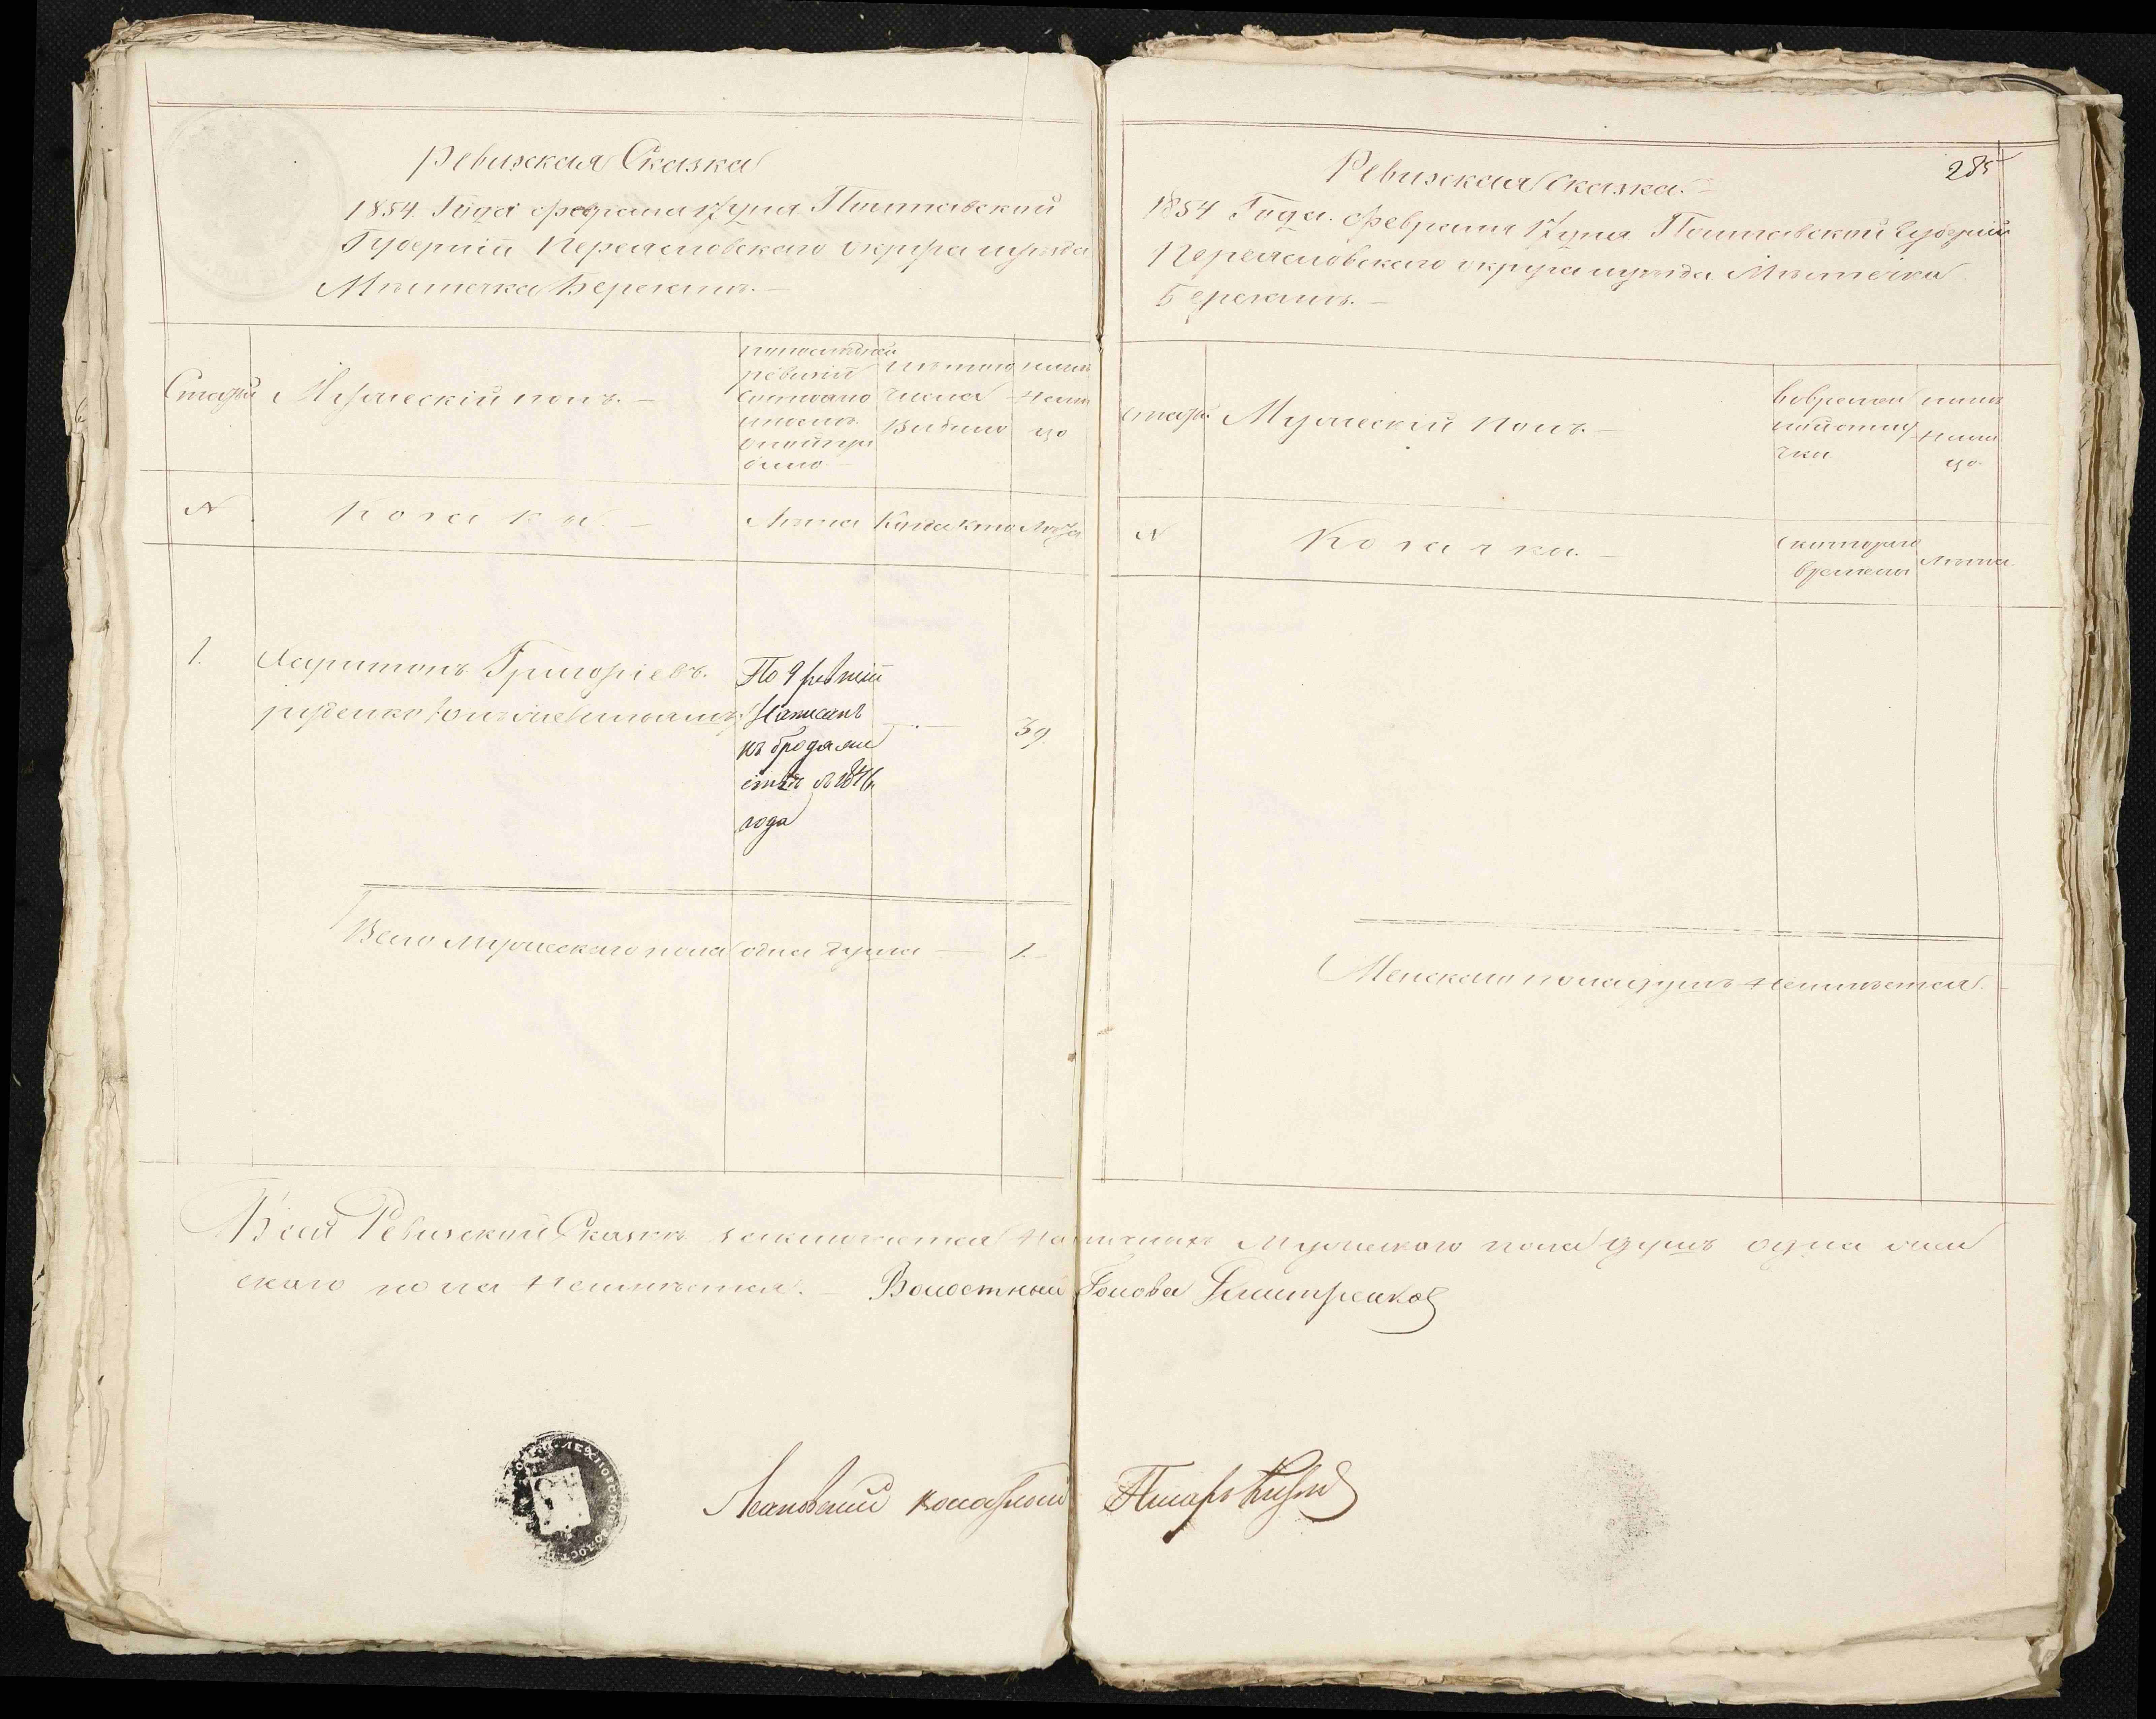 Ревизская Сказка
1854 Года февраля 17 дня Полтавской
Губерніи Переяславского округа иуезда
Мѣстечка Березань. —
Старый
Мужескій полъ. —
попоследней
ревизіи
состояло
ипослѣ
оной при
было
Изтого
числа
Выбыло
нынѣ
Нали
цо
N
Козаки. —
Лѣта
Когда кто
Лѣта
1.
Харитонъ Григоріевъ
По 9 ревизіи
Написанъ
къ бродяже
ствѣ съ 1846
года
39.
Всего мужескаго пола одна душа —
1. —
Ревизская Сказка. —
285
1854 Года. февраля 17 дня Полтавской Губерніи
Переяславского округа иуезда Мѣстечка
Березань. —
Мужескій полъ. —
вовремен
ной отлу
чки
нынѣ
Нали
цо.
N
Козачки. —
Скоторого
времени
Лѣта.
Женскаго пола душъ неимѣется.
Всей Ревизской Сказкѣ заключается Наличныхъ Мужескаго пола душъ одна жен
скаго пола Неимѣется. — Волостный Голова Дмитренко
Писарь